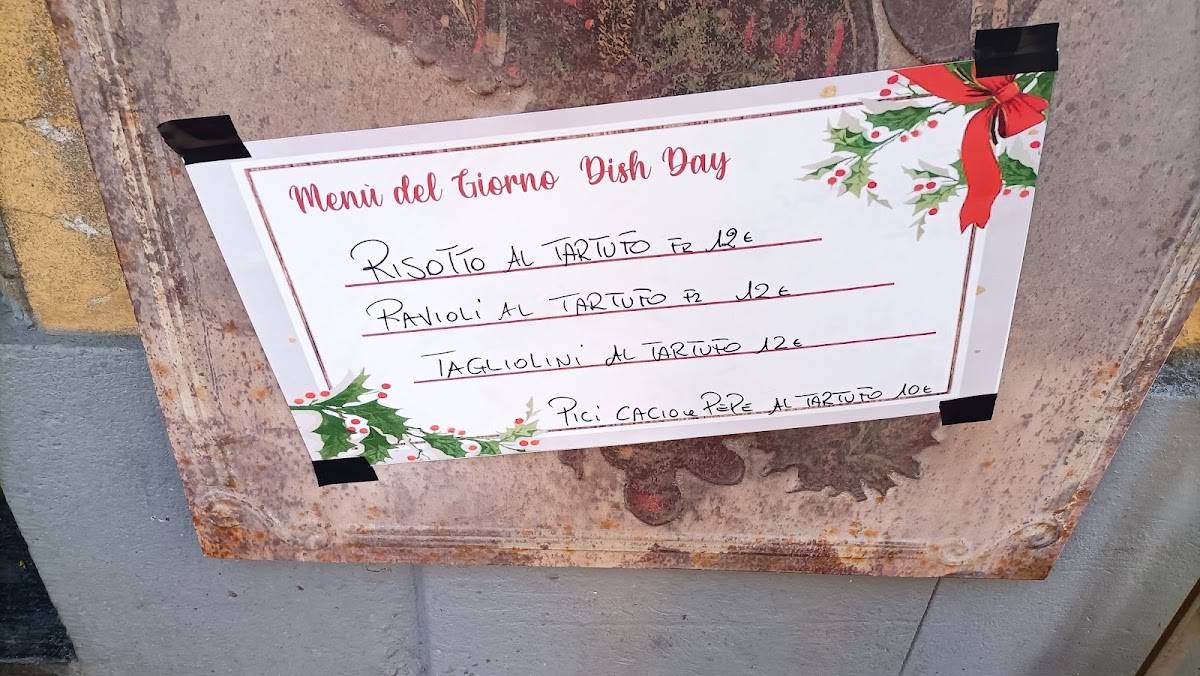 Menù del Giorno Dish Day
RISOTTO AL TARTUFO FR 12€
RAVIOLI AL TARTUFO FR 12€
TAGLIOLINI AL TARTUFO 12€
PICI CACIO e PEPE AL TARTUFO 10€